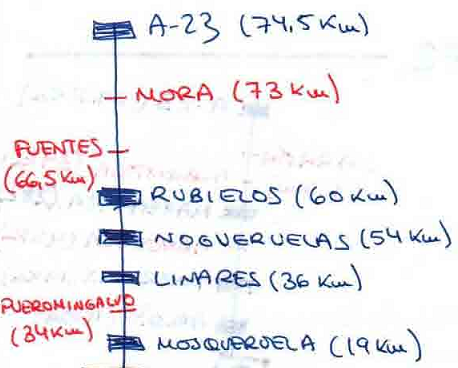 A-23 (74,5 Km)
MORA (73 Km)
FUENTES
(66,5 Km)
RUBIELOS (60 Km)
NOGUERUELAS (54 Km)
LINARES (36 Km)
PUERTOMINGALVO
(34 Km)
MOSQUERUELA (19 Km)